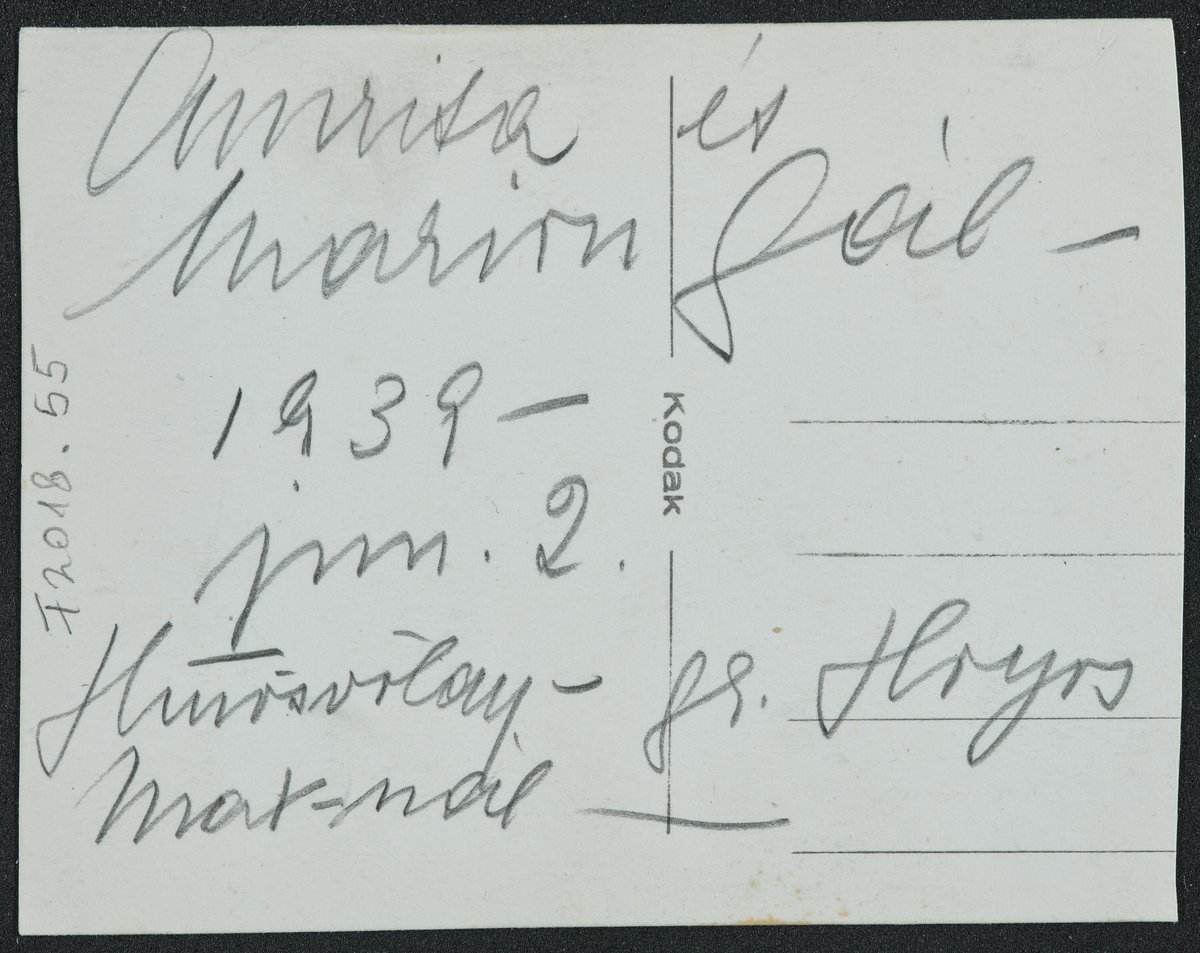 Amrita és
Marion Gál —
1939 —
jun. 2.
Hűvösvölgy - gr. Hoyos
Max-nál —
Kodak
F2018.55